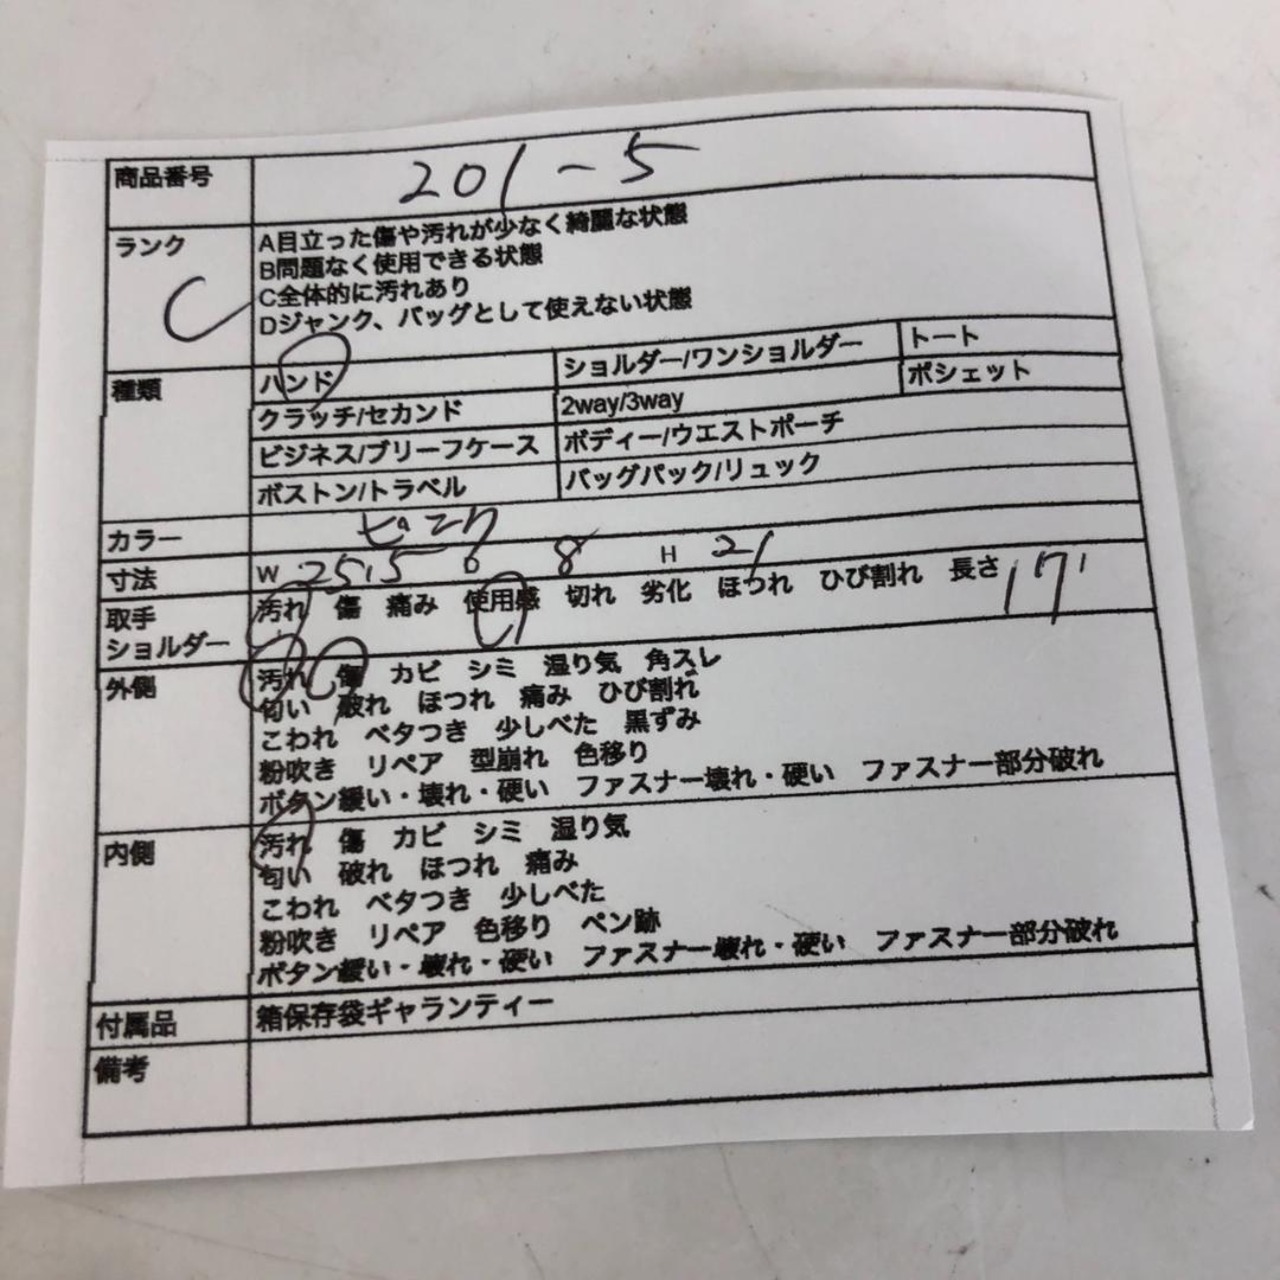 商品番号 201-5
ランク C
A目立った傷や汚れが少なく綺麗な状態
B問題なく使用できる状態
C全体的に汚れあり
Dジャンク、バッグとして使えない状態
種類 ハンド ショルダー/ワンショルダー トート
クラッチ/セカンド 2way/3way ポシェット
ビジネス/ブリーフケース ボディー/ウエストポーチ
ボストン/トラベル バッグパック/リュック
カラー
寸法 W 25.5 D 8 H 21
取手 汚れ 傷 痛み 使用感 切れ 劣化 ほつれ ひび割れ 長さ 17
ショルダー
外側 汚れ 傷 カビ シミ 湿り気 角スレ
匂い 破れ ほつれ 痛み ひび割れ
こわれ ベタつき 少しべた 黒ずみ
粉吹き リペア 型崩れ 色移り
ボタン緩い・壊れ・硬い ファスナー壊れ・硬い ファスナー部分破れ
内側 汚れ 傷 カビ シミ 湿り気
匂い 破れ ほつれ 痛み
こわれ ベタつき 少しべた
粉吹き リペア 色移り ペン跡
ボタン緩い・壊れ・硬い ファスナー壊れ・硬い ファスナー部分破れ
付属品 箱保存袋ギャランティー
備考